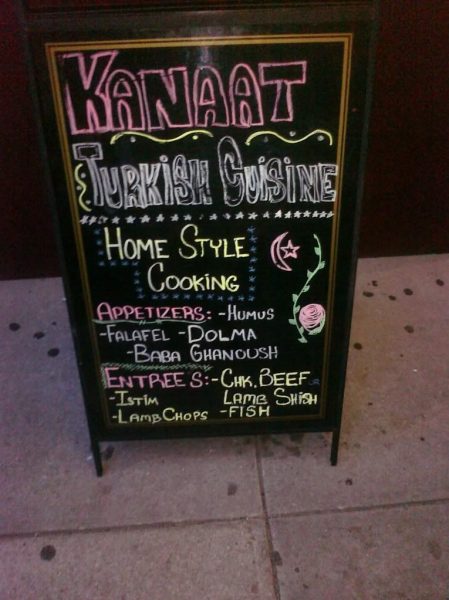 KANAAT
TURKISH CUISINE
HOME STYLE
COOKING
APPETIZERS: -HUMUS
-FALAFEL -DOLMA
-BABA GHANOUSH
ENTREES: -CHK, BEEF OR
-ISTIM LAMB SHISH
-LAMB CHOPS -FISH